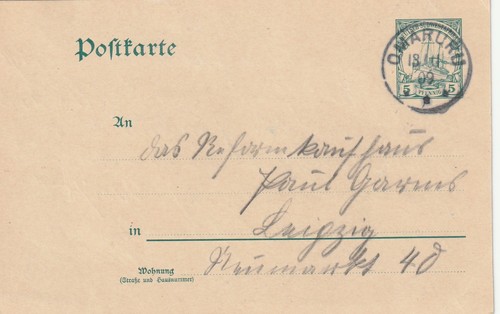 Postkarte
OMARURU
09
5 PFENNIG 5
An
das Reformkaufhaus
Paul Garms
in Leipzig
Neumarkt 40
Wohnung
(Straße und Hausnummer)